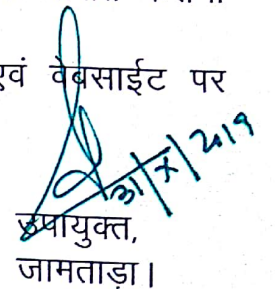 एवं वेबसाईट पर
31/X/2019
उपायुक्त,
जामताड़ा।